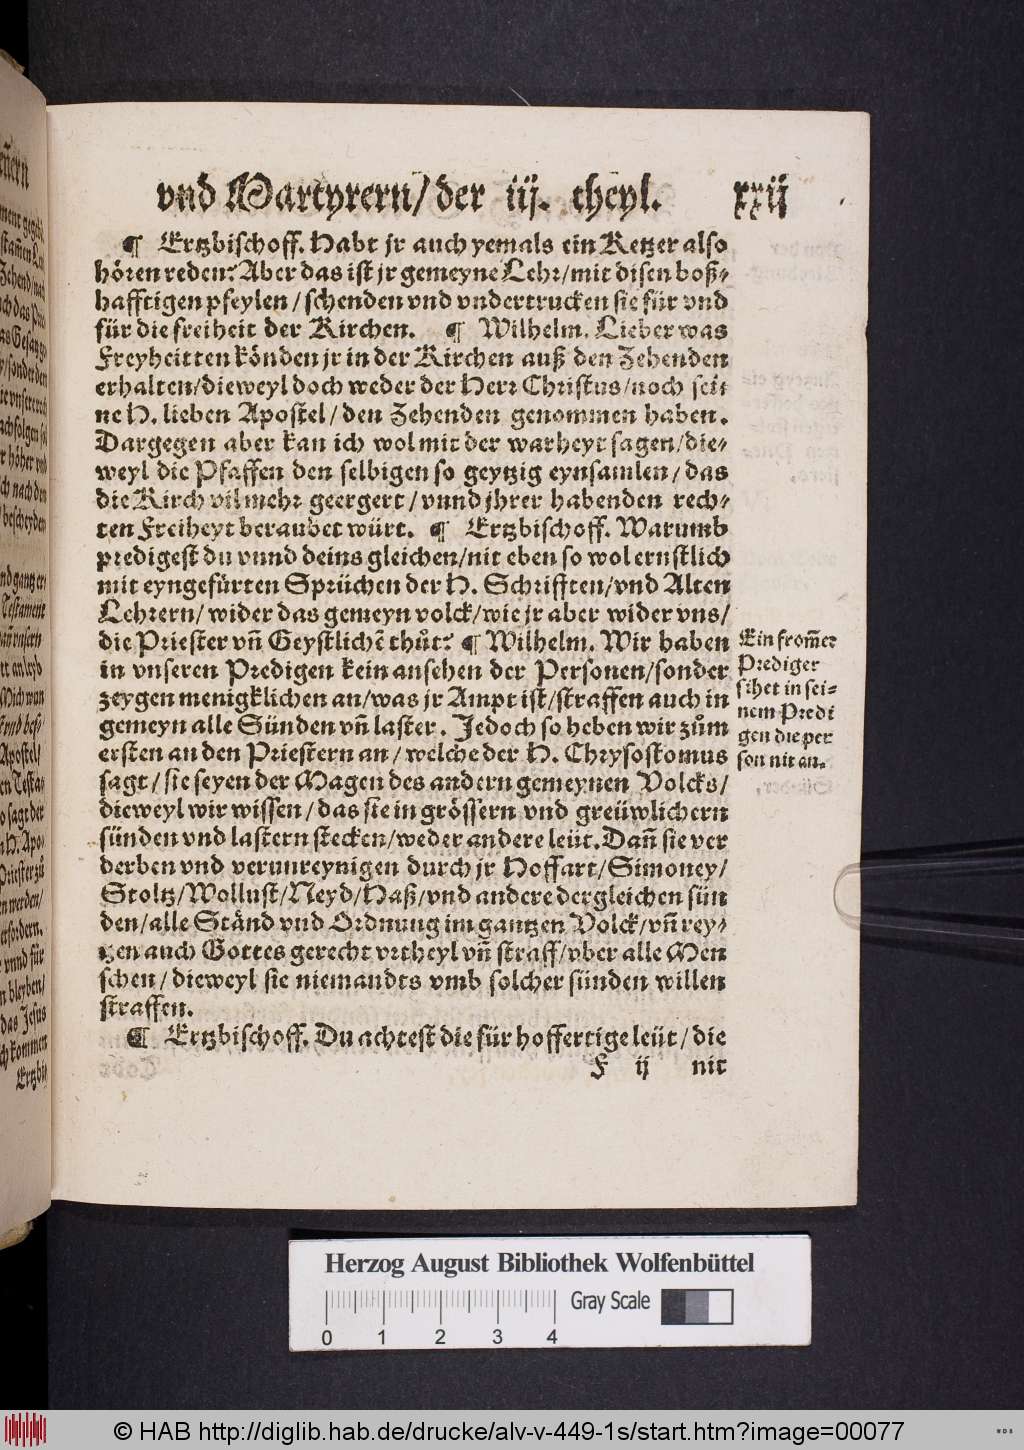 vnd Martyrern/ der iij. theyl. xxij
¶ Ertzbischoff. Habt jr auch yemals ein Ketzer also
hören reden? Aber das ist jr gemeyne Lehr/ mit disen boß-
hafftigen pfeylen/ schenden vnd vndertrucken sie für vnd
für die freiheit der Kirchen. ¶ Wilhelm. Lieber was
Freyheitten könden jr in der Kirchen auß den Zehenden
erhalten/ dieweyl doch weder der Herr Christus/ noch sei
ne H. lieben Apostel/ den Zehenden genommen haben.
Dargegen aber kan ich wol mit der warheyt sagen/ die-
weyl die Pfaffen den selbigen so geytzig eynsamlen/ das
die Kirch vil mehr geergert/ vnnd jhrer habenden rech-
ten Freiheyt beraubet würt. ¶ Ertzbischoff. Warumb
predigest du vnnd deins gleichen/ nit eben so wol ernstlich
mit eyngefürten Sprüchen der H. Schrifften/ vnd Alten
Lehrern/ wider das gemeyn volck/ wie jr aber wider vns/
die Priester vñ Geystlichẽ thůt? ¶ Wilhelm. Wir haben
in vnseren Predigen kein ansehen der Personen/ sonder
zeygen menigklichen an/ was jr Ampt ist/ straffen auch in
gemeyn alle Sünden vñ laster. Jedoch so heben wir zům
ersten an den Priestern an/ welche der H. Chrysostomus
sagt/ sie seyen der Magen des andern gemeynen Volcks/
dieweyl wir wissen/ das sie in grössern vnd greüwlichern
sünden vnd lastern stecken/ weder andere leüt. Dañ sie ver
derben vnd verunreynigen durch jr Hoffart/ Simoney/
Stoltz/ Wollust/ Neyd/ Haß/ vnd andere dergleichen sün
den/ alle Ständ vnd Ordnung im gantzen Volck/ vñ rey-
tzen auch Gottes gerecht vrtheyl vñ straff/ vber alle Men
schen/ dieweyl sie niemandts vmb solcher sünden willen
straffen.
¶ Ertzbischoff. Du achtest die für hoffertige leüt/ die
F ij nit
Ein from̃er
Prediger
sihet in sei-
nem Predi
gen die per
son nit an.
Herzog August Bibliothek Wolfenbüttel
Gray Scale
0 1 2 3 4
© HAB http://diglib.hab.de/drucke/alv-v-449-1s/start.htm?image=00077